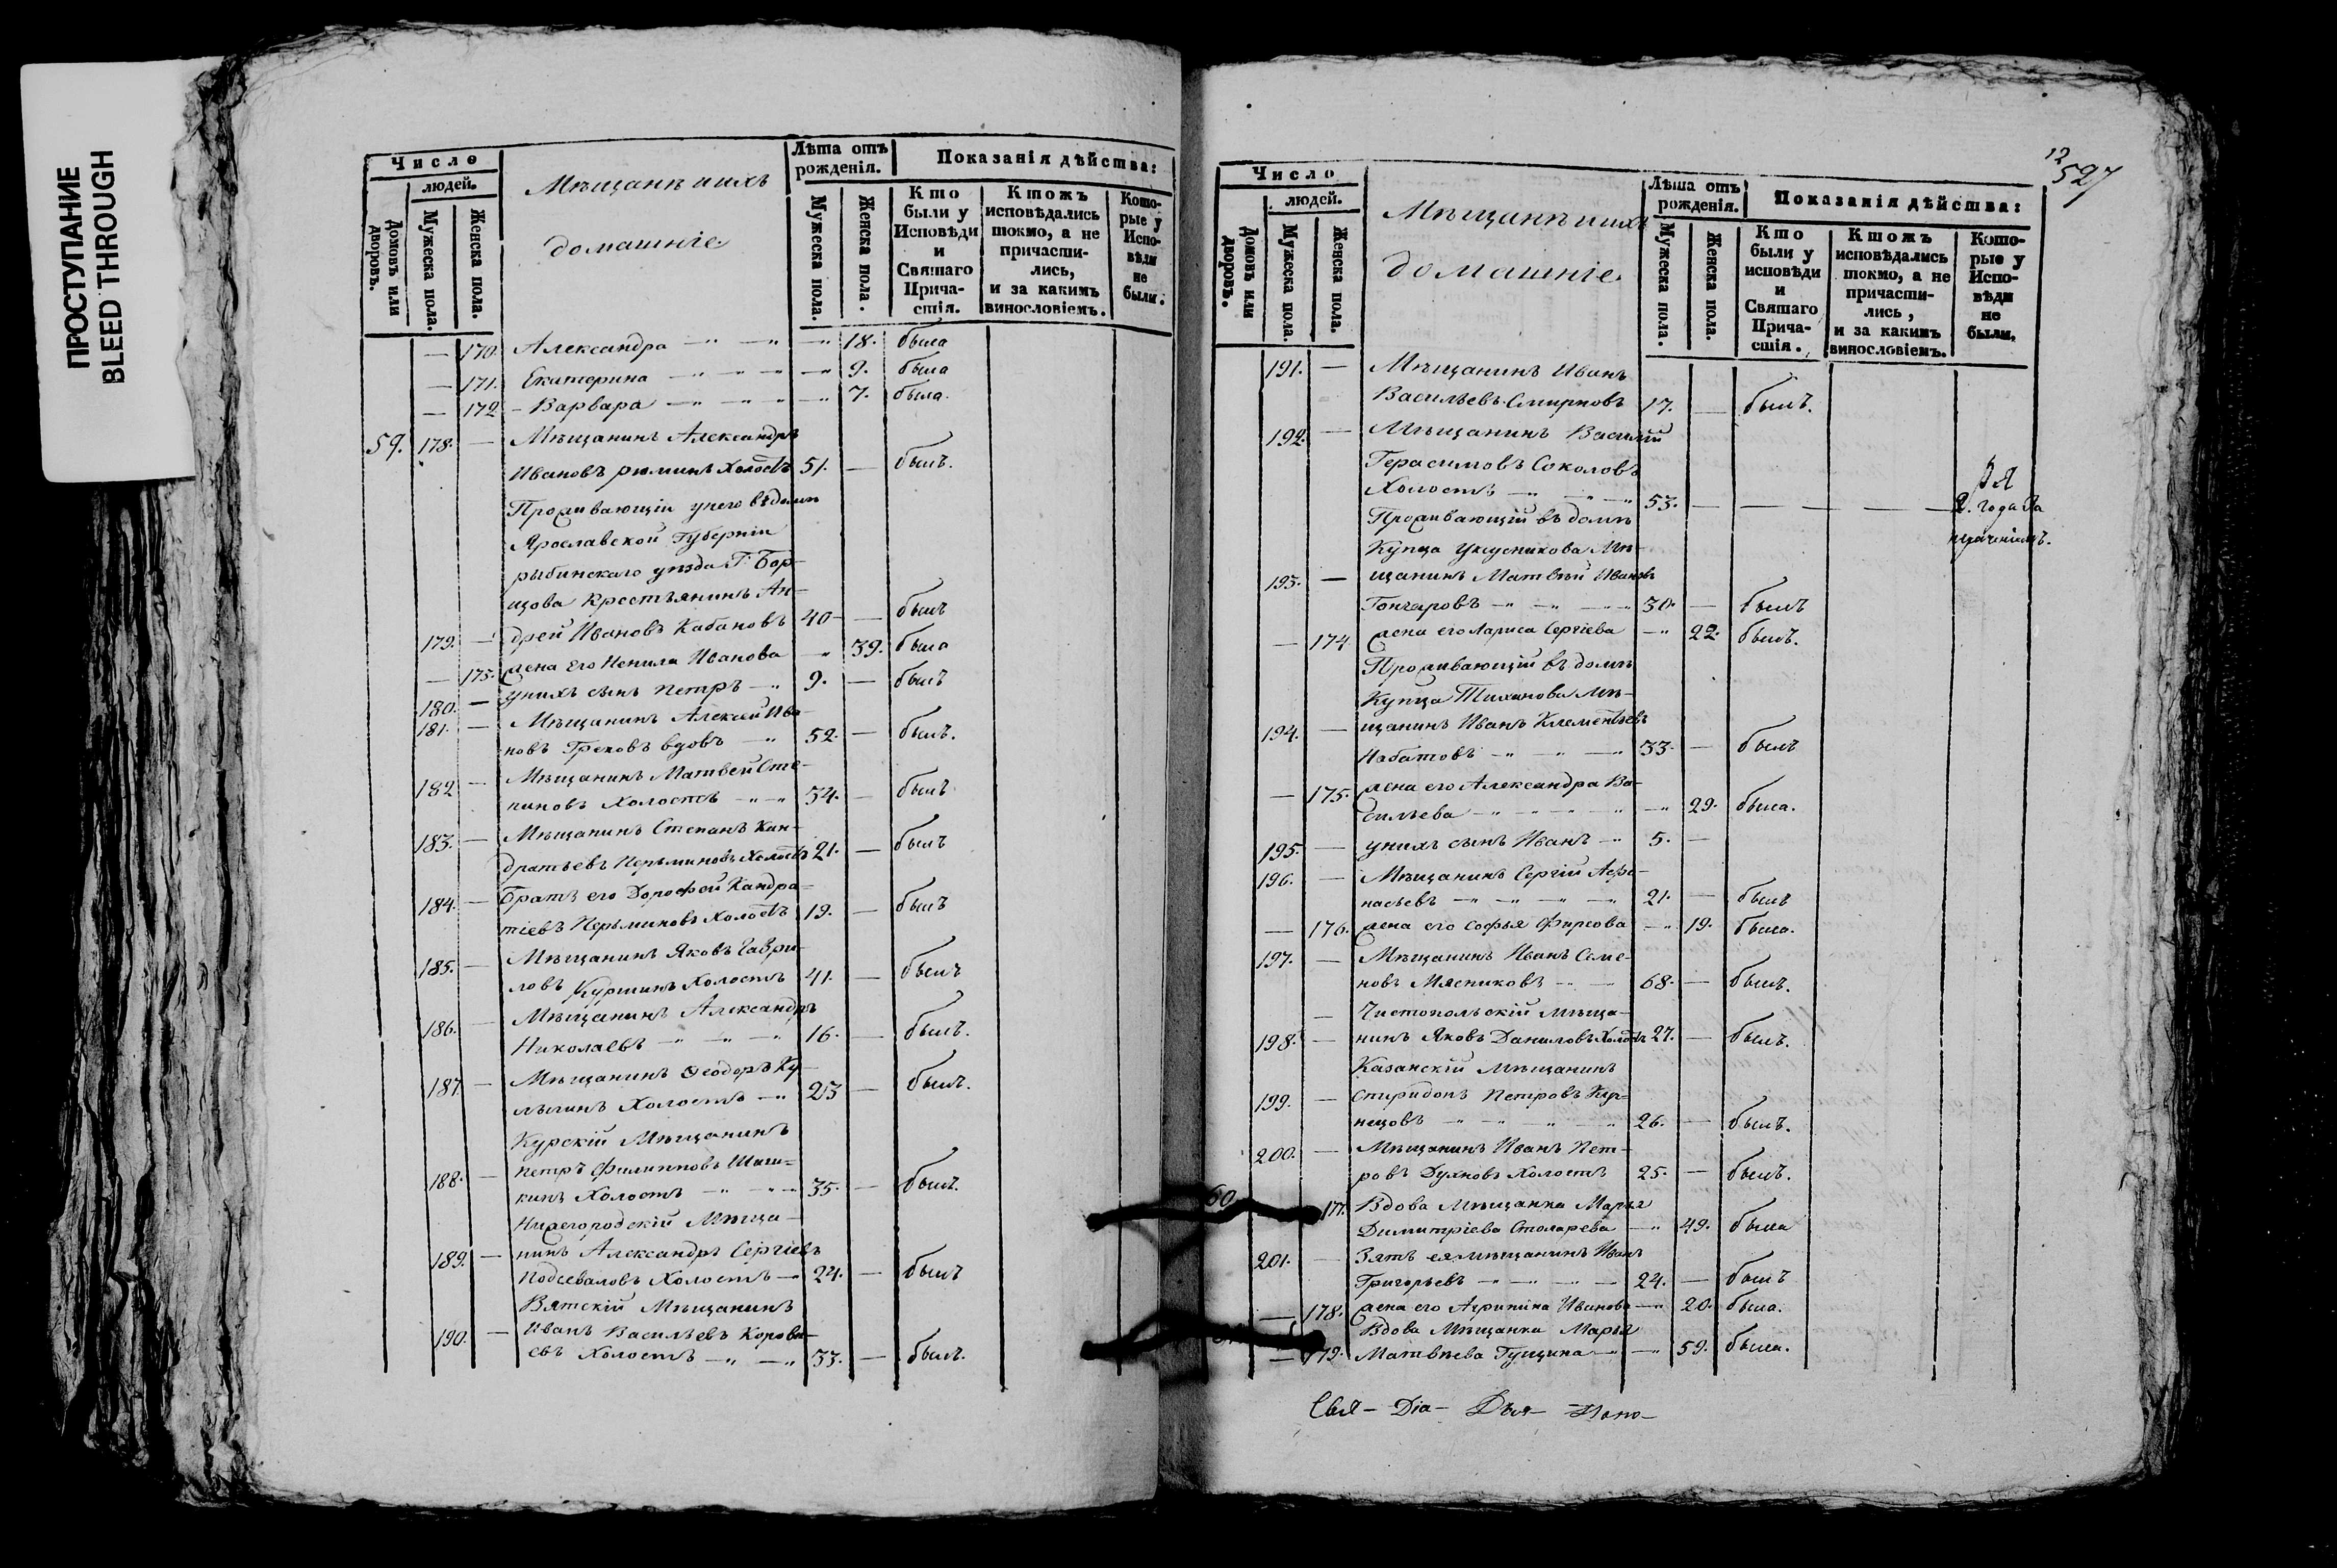 ПРОСТУПАНИЕ
BLEED THROUGH
Число
людей.
Домовъ или дворовъ.
Мужеска пола.
Женска пола.
Мѣщане и ихъ
домашніе
Лѣта отъ рожденія.
Мужеска пола.
Женска пола.
Показанія дѣйства:
Кто были у Исповѣди и Святаго Прича-стія.
Ктожъ исповѣдались токмо, а не причасти-лись, и за какимъ винословіемъ.
Кото-рые у Испо-вѣди не были.
— 170. Александра — 18. была
— 171. Екатерина — 9. была
— 172 Варвара — 7. была.
59. 178. — Мѣщанинъ Александръ
Ивановъ Рюминъ Холостъ 51. — былъ.
Проживающій у него въ домѣ
Ярославской Губерніи
рыбинскаго уѣзда Г. Бор-
щова Крестьянинъ Ан-
179. — дрей Ивановъ Кабановъ 40 — былъ
— 173. жена его Ненила Иванова — 39. была
180. — у нихъ сынъ Петръ — 9. — былъ
181. — Мѣщанинъ Алексѣй Ива-
новъ Грековъ вдовъ — 52. — былъ.
182 — Мѣщанинъ Матвей Сте-
пановъ Холостъ — 34. — былъ
183. — Мѣщанинъ Степанъ Кан-
дратьевъ Перьминовъ Холостъ 21. — былъ
184. — Братъ его Дорофей Кандра-
тіевъ Перьминовъ Холостъ 19. — былъ
185. — Мѣщанинъ Яковъ Гаври-
ловъ Куршинъ Холостъ 41. — былъ
186. — Мѣщанинъ Александръ
Николаевъ — 16. — былъ.
187. — Мѣщанинъ Ѳеодоръ Ку-
льгинъ Холостъ — 23 — былъ.
Курскій Мѣщанинъ
188. — Петръ Филипповъ Шаш-
кинъ Холостъ — 35. — былъ.
Нижегородскій Мѣща-
189. — нинъ Александръ Сергіевъ
Подсеваловъ Холостъ — 24. — былъ
Вятскій Мѣщанинъ
190. — Иванъ Васильевъ Корова-
евъ Холостъ — 33. — былъ.
12
527
Число
людей.
Домовъ или дворовъ.
Мужеска пола.
Женска пола.
Мѣщане и ихъ
домашніе
Лѣта отъ рожденія.
Мужеска пола.
Женска пола.
Показанія дѣйства:
Кто были у исповѣди и Святаго Прича-стія.
Ктожъ исповѣдались токмо, а не причасти-лись, и за какимъ винословіемъ.
Кото-рые у Испо-вѣди не были.
191. — Мѣщанинъ Иванъ
Васильевъ Смирновъ 17. — былъ.
192. — Мѣщанинъ Василій
Герасимовъ Соколовъ
Холостъ — 53. — — — — 2. года За
Проживающій въ домѣ
Купца Уксусникова Мѣ-
193. — щанинъ Матвѣй Ивановъ
Гончаровъ — 30. — былъ
— 174 жена его Лариса Сергіева — 22. былъ.
Проживающій въ домѣ
Купца Тиханова Мѣ-
194. — щанинъ Иванъ Клементьевъ
Набатовъ — 33. — былъ
— 175. жена его Александра Ва-
сильева — 29. была.
195. — у нихъ сынъ Иванъ — 5. —
196. — Мѣщанинъ Сергій Афо-
насьевъ — 21. — былъ
— 176. жена его Софья Фирсова — 19. была.
197. — Мѣщанинъ Иванъ Семе-
новъ Мясниковъ — 68. — былъ.
— Чистопольскій мѣща-
198. — нинъ Яковъ Даниловъ Холостъ 27. — былъ.
Казанскій мѣщанинъ
199. — Спиридонъ Петровъ
— 26. — былъ.
200. — Мѣщанинъ Иванъ Пет-
ровъ Духновъ Холостъ 25. — былъ.
60 177. Вдова Мѣщанка Марья
Димитріева Столарева — 49. была
201. — Зять ея мѣщанинъ Иванъ
Григорьевъ — 24. — былъ
— 178. жена его Агрипина Иванова — 20. была.
Вдова Мѣщанка Марья
— 179. Матвѣева Гущина — 59. была.
Свя- Діа- Дья- Поно-